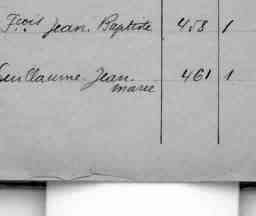 Frois Jean Baptiste 453 1
Guillaume Jean 461 1
marie